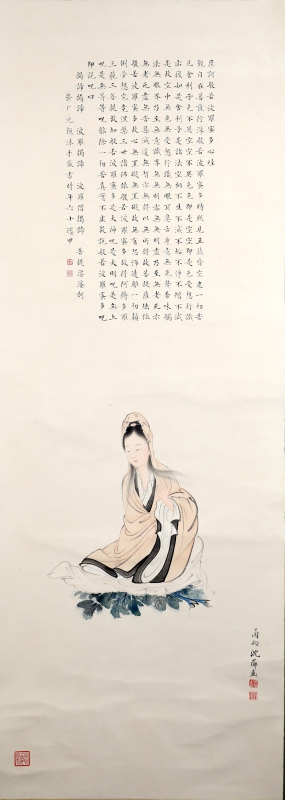 摩訶般若波羅蜜多心經
觀自在菩薩行深般若波羅蜜多時照見五蘊皆空度一切苦
厄舍利子色不異空空不異色色即是空空即是色受想行識
亦復如是舍利子是諸法空相不生不滅不垢不淨不增不減
是故空中無色無受想行識無眼耳鼻舌身意無色聲香味觸
法無眼界乃至無意識界無無明亦無無明盡乃至無老死亦
無老死盡無苦集滅道無智亦無得以無所得故菩提薩埵依
般若波羅蜜多故心無罣礙無罣礙故無有恐怖遠離一切顛
倒夢想究竟涅槃三世諸佛依般若波羅蜜多故得阿耨多羅
三藐三菩提故知般若波羅蜜多是大神呪是大明呪是無上
呪是無等等呪能除一切苦真實不虛故說般若波羅蜜多呪
即說呪曰
揭諦揭諦 波羅揭諦 波羅僧揭諦 菩提薩婆訶
沐手敬書時年六十週甲
沈